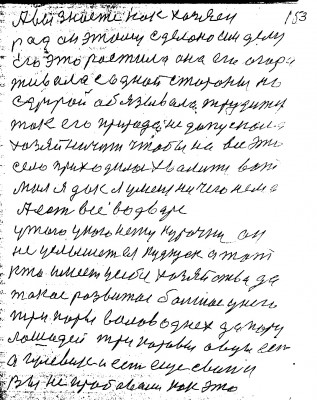 А вы знаете как хозяен 153
рад он этому сделоно
его это ростила она его огор
живала с одной стороны но
с другой обязывала трудится
так его природа не допускала
хозяйничит чтобы на все это
село приходилось хвалить вот
мол я дак я умею ничего нема
А ест всё во дворе
у того у кого нету курочки он
не услышет а тот
кто имеет у себе хозяйства да
такое развитое большое у него
три пары волов однех да пару
лошадей три коровы овцы ест
а гулевых и ест еще свини
вы не пробовали как это